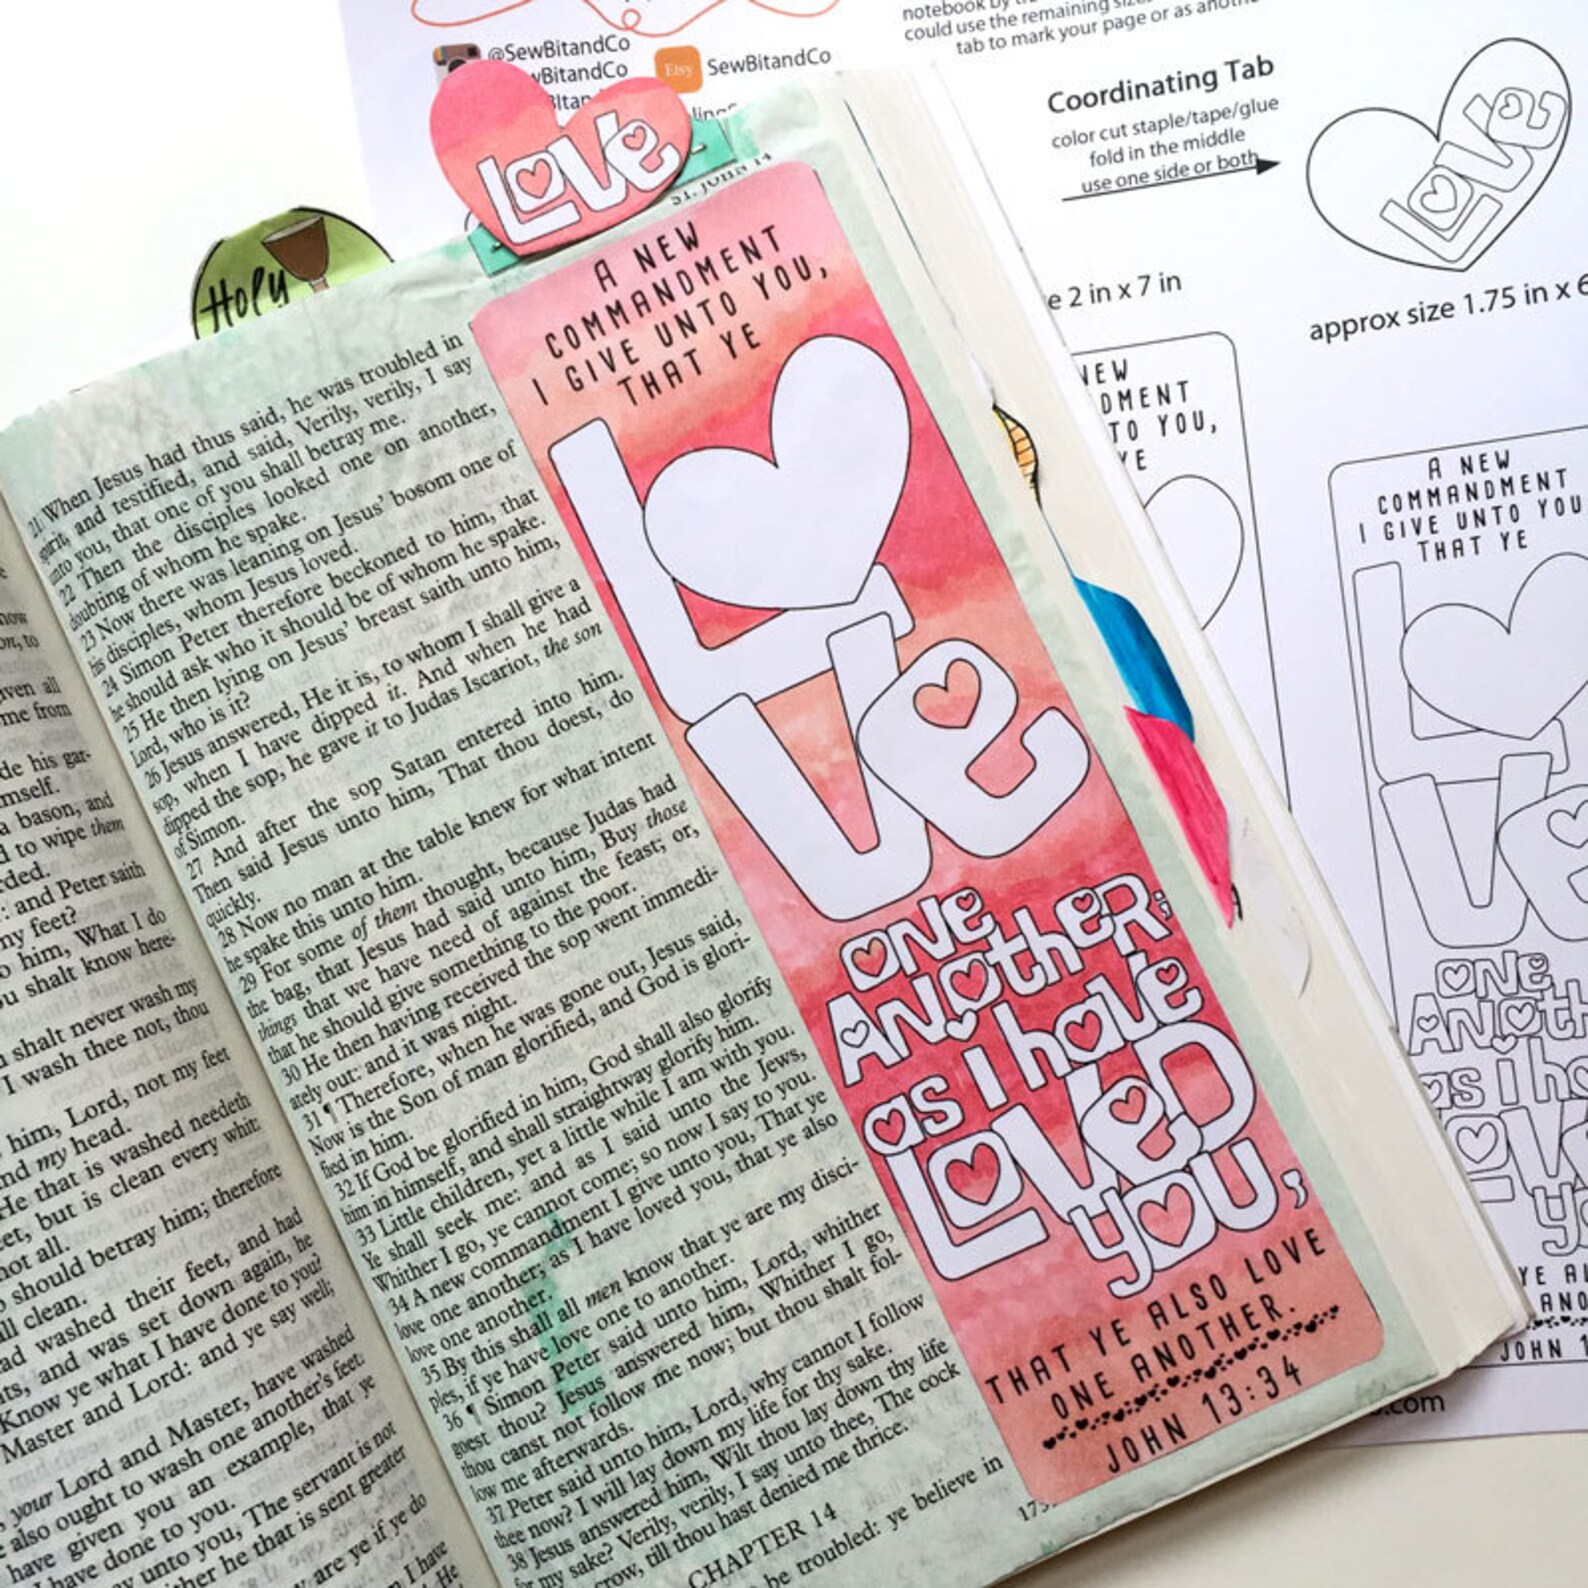 @SewBitandCo
wBitandCo
Etsy SewBitandCo
could use the remaining
tab to mark your page or as
Coordinating Tab
color cut staple/tape/glue
fold in the middle
use one side or both
Love
Love
Holy
2 in x 7 in
approx size 1.75 in x
A NEW
COMMANDMENT
I GIVE UNTO YOU,
THAT YE
LOVE
ONE
ANOTHER;
as I have
LOVED
YOU,
THAT YE ALSO LOVE
ONE ANOTHER.
JOHN 13:34
21 When Jesus had thus said, he was troubled in
spirit, and testified, and said, Verily, verily, I say
unto you, that one of you shall betray me.
22 Then the disciples looked one on another,
doubting of whom he spake.
23 Now there was leaning on Jesus' bosom one of
his disciples, whom Jesus loved.
24 Simon Peter therefore beckoned to him, that
he should ask who it should be of whom he spake.
25 He then lying on Jesus' breast saith unto him,
Lord, who is it?
26 Jesus answered, He it is, to whom I shall give a
sop, when I have dipped it. And when he had
dipped the sop, he gave it to Judas Iscariot, the son
of Simon.
27 And after the sop Satan entered into him.
Then said Jesus unto him, That thou doest, do
quickly.
28 Now no man at the table knew for what intent
he spake this unto him.
29 For some of them thought, because Judas had
the bag, that Jesus had said unto him, Buy those
things that we have need of against the feast; or,
that he should give something to the poor.
30 He then having received the sop went immedi-
ately out: and it was night.
31 ¶ Therefore, when he was gone out, Jesus said,
Now is the Son of man glorified, and God is glori-
fied in him.
32 If God be glorified in him, God shall also glorify
him in himself, and shall straightway glorify him.
33 Little children, yet a little while I am with you.
Ye shall seek me: and as I said unto the Jews,
Whither I go, ye cannot come; so now I say to you.
34 A new commandment I give unto you, That ye
love one another; as I have loved you, that ye also
love one another.
35 By this shall all men know that ye are my disci-
ples, if ye have love one to another.
36 ¶ Simon Peter said unto him, Lord, whither
goest thou? Jesus answered him, Whither I go,
thou canst not follow me now; but thou shalt fol-
low me afterwards.
37 Peter said unto him, Lord, why cannot I follow
thee now? I will lay down my life for thy sake.
38 Jesus answered him, Wilt thou lay down thy life
for my sake? Verily, verily, I say unto thee, The cock
crow, till thou hast denied me thrice.
CHAPTER 14
be troubled: ye believe in
de his gar-
mself.
a bason, and
d to wipe them
: and Peter saith
my feet?
him, What I do
shalt know here-
shalt never wash my
I wash thee not, thou
him, Lord, not my feet
nd my head.
He that is washed needeth
eet, but is clean every whit:
not all.
should betray him; therefore
ll clean.
washed their feet, and had
ts, and was set down again, he
Know ye what I have done to you?
Master and Lord: and ye say well;
your Lord and Master, have washed
also ought to wash one another's feet:
have given you an example, that ye
have done to you.
unto you, The servant is not
he that is sent greater
are ye if ye do
DMENT
TO YOU,
YE
A NEW
COMMANDMENT
I GIVE UNTO YOU
THAT YE
ONE
as I
.com